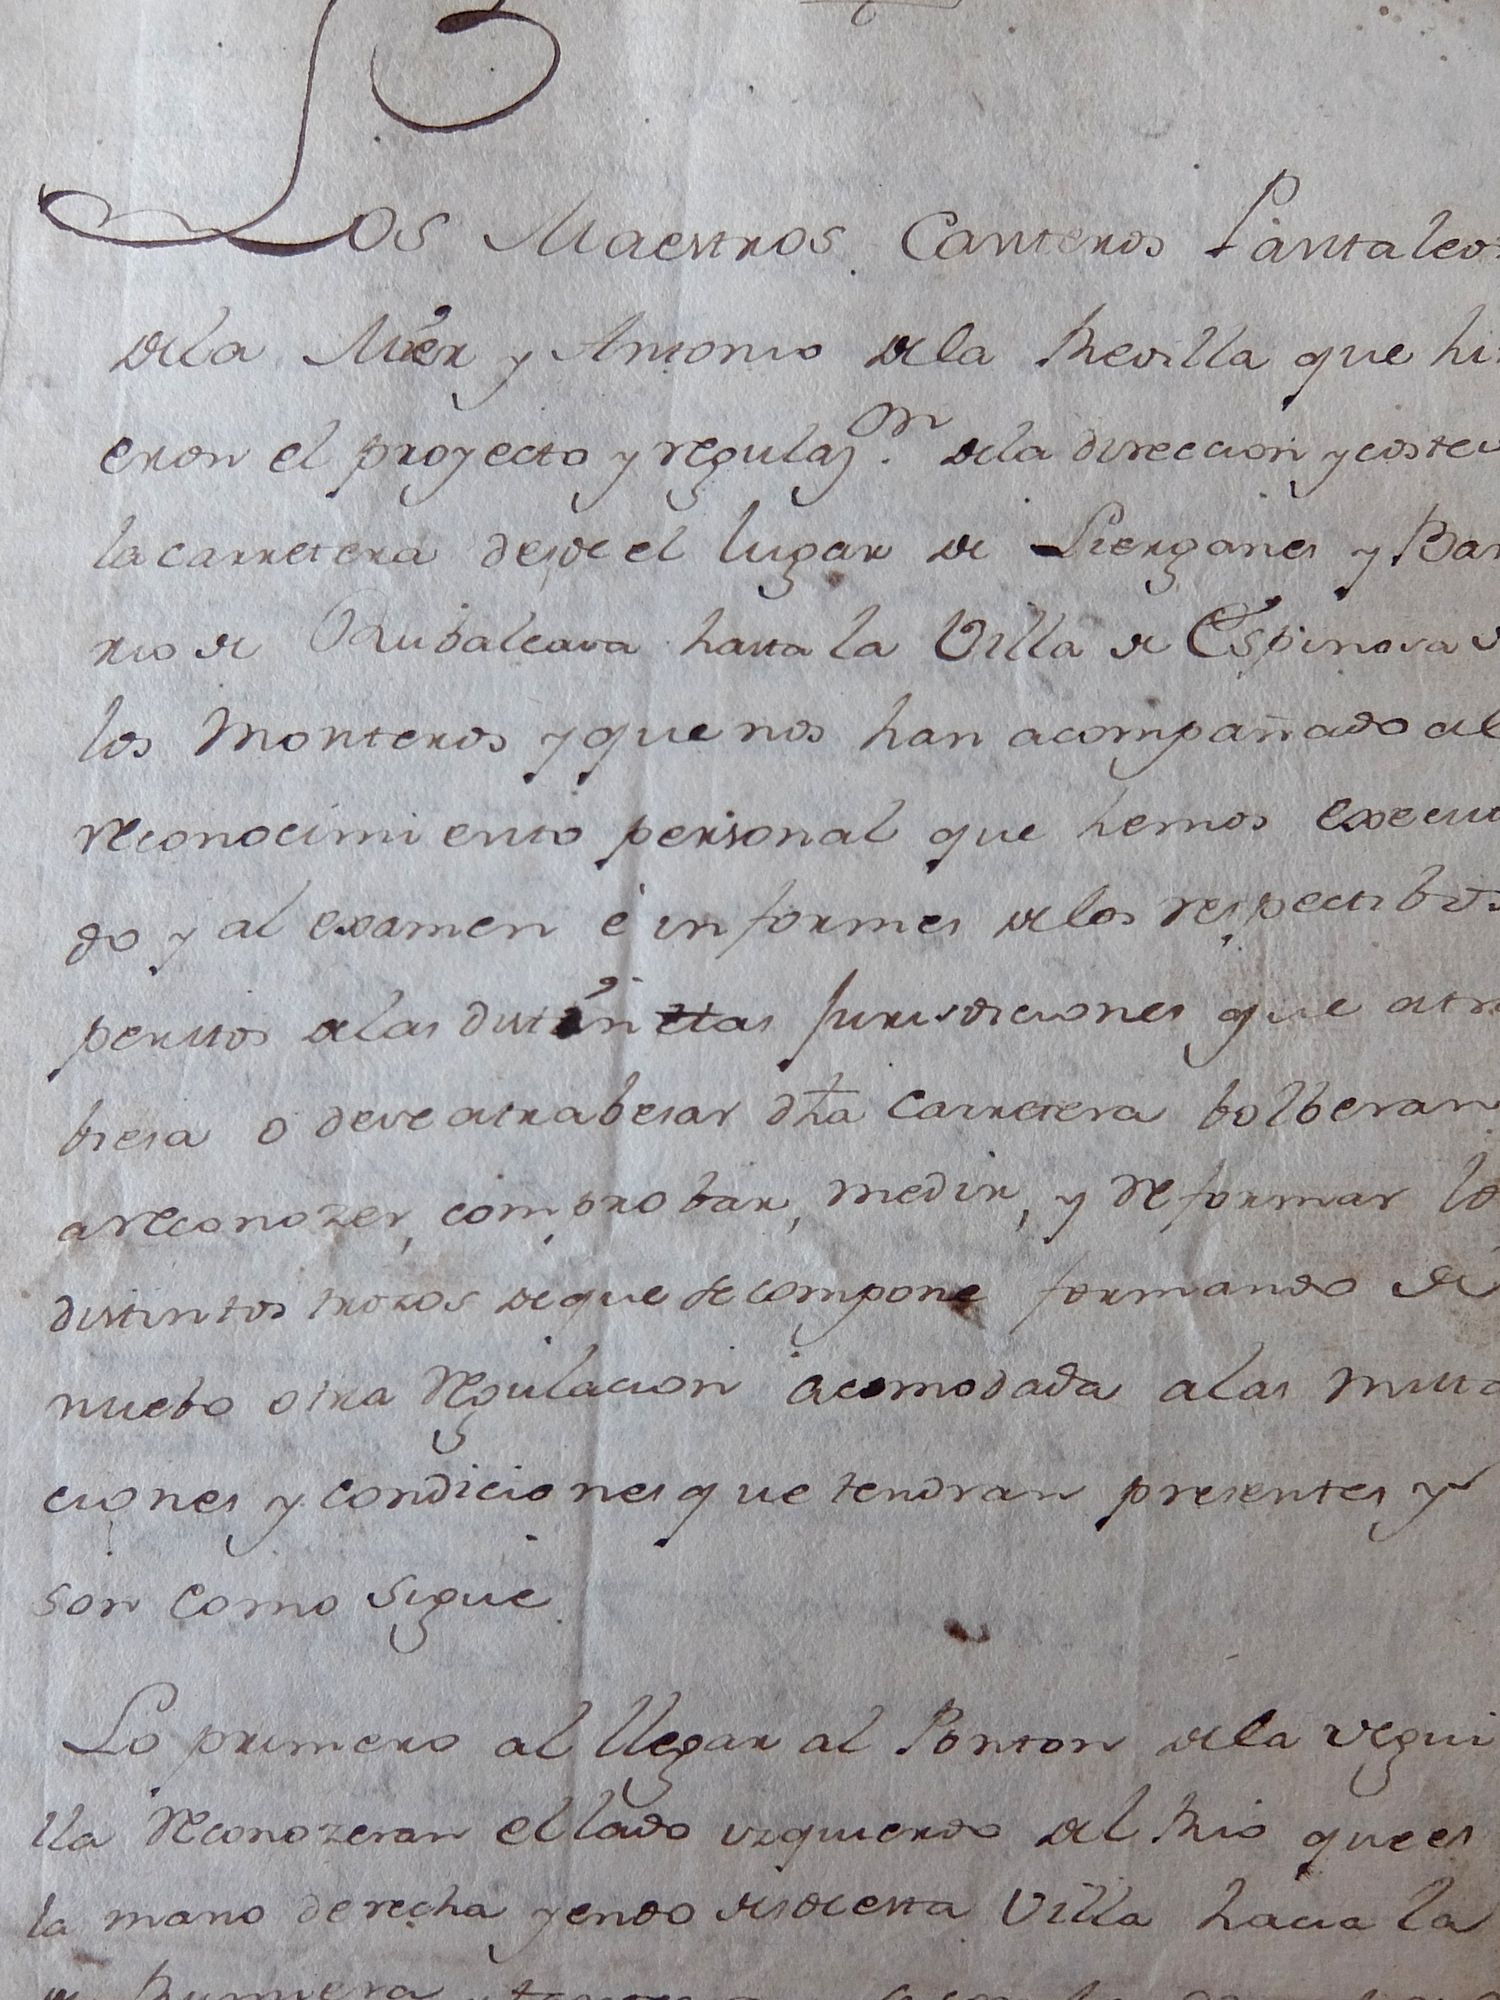 Los Maestros Canteros Pantaleon
dela Mier y Antonio dela Revilla que hi
cieron el proyecto y regulaz.on dela direccion y coste
la carretera desde el lugar de Lierganes y Bar
rio de Rubalcava hasta la Villa de Espinosa d
los Monteros y que nos han acompañado al
reconocimiento personal que hemos execut
do y al examen é informes delos respectibos
peritos alas distintas Jurisdiciones que atra
biesa o deve atrabesar dha Carretera bolberan
areconozer, comprobar, medir, y reformar lo
distintos trozos deque se compone formando de
nuebo otra regulacion acomodada alas muta
ciones y condiciones que tendran presentes y
son como sigue
Lo primero al llegar al Ponton dela vegui
lla reconozeran ellado izquierdo del Rio que es
la mano derecha yendo desde esta Villa hacia la
de